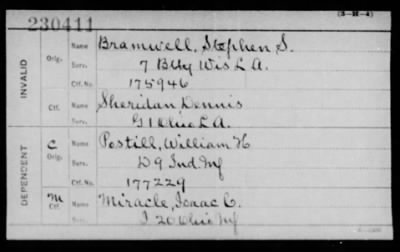 (3-M-4)
230411
INVALID
Orig.
Name Bramwell, Stephen S.
Serv. 7 Btty Wis L A.
Ctf. No. 175946
Ctf.
Name Sheridan Dennis
Serv. G 1 Ohio L A.
DEPENDENT
C
Orig.
Name Postill, William H
Serv. D 9 Ind. Inf
Ctf. No. 177229
M
Ctf.
Name Miracle, Isaac C.
I 20 Ohio Inf